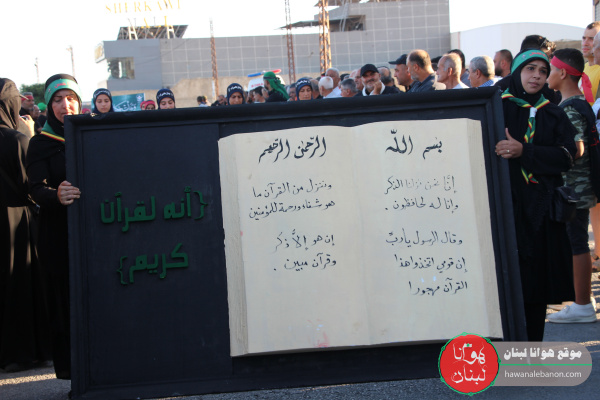 SHERKAWI
MALL
بسم الله
الرحمن الرحيم
إنّا نحن نزلنا الذكر
وإنا له لحافظون .
وقال الرسول يا ربّ
إن قومي اتخذوا هذا
القرآن مهجورا
وننزل من القرآن ما
هو شفاء ورحمة للمؤمنين
إن هو إلاّ ذكر
وقرآن مبين .
{إنه لقرآن
كريم}
هوانا
لبنان
موقع هوانا لبنان
hawanalebanon.com